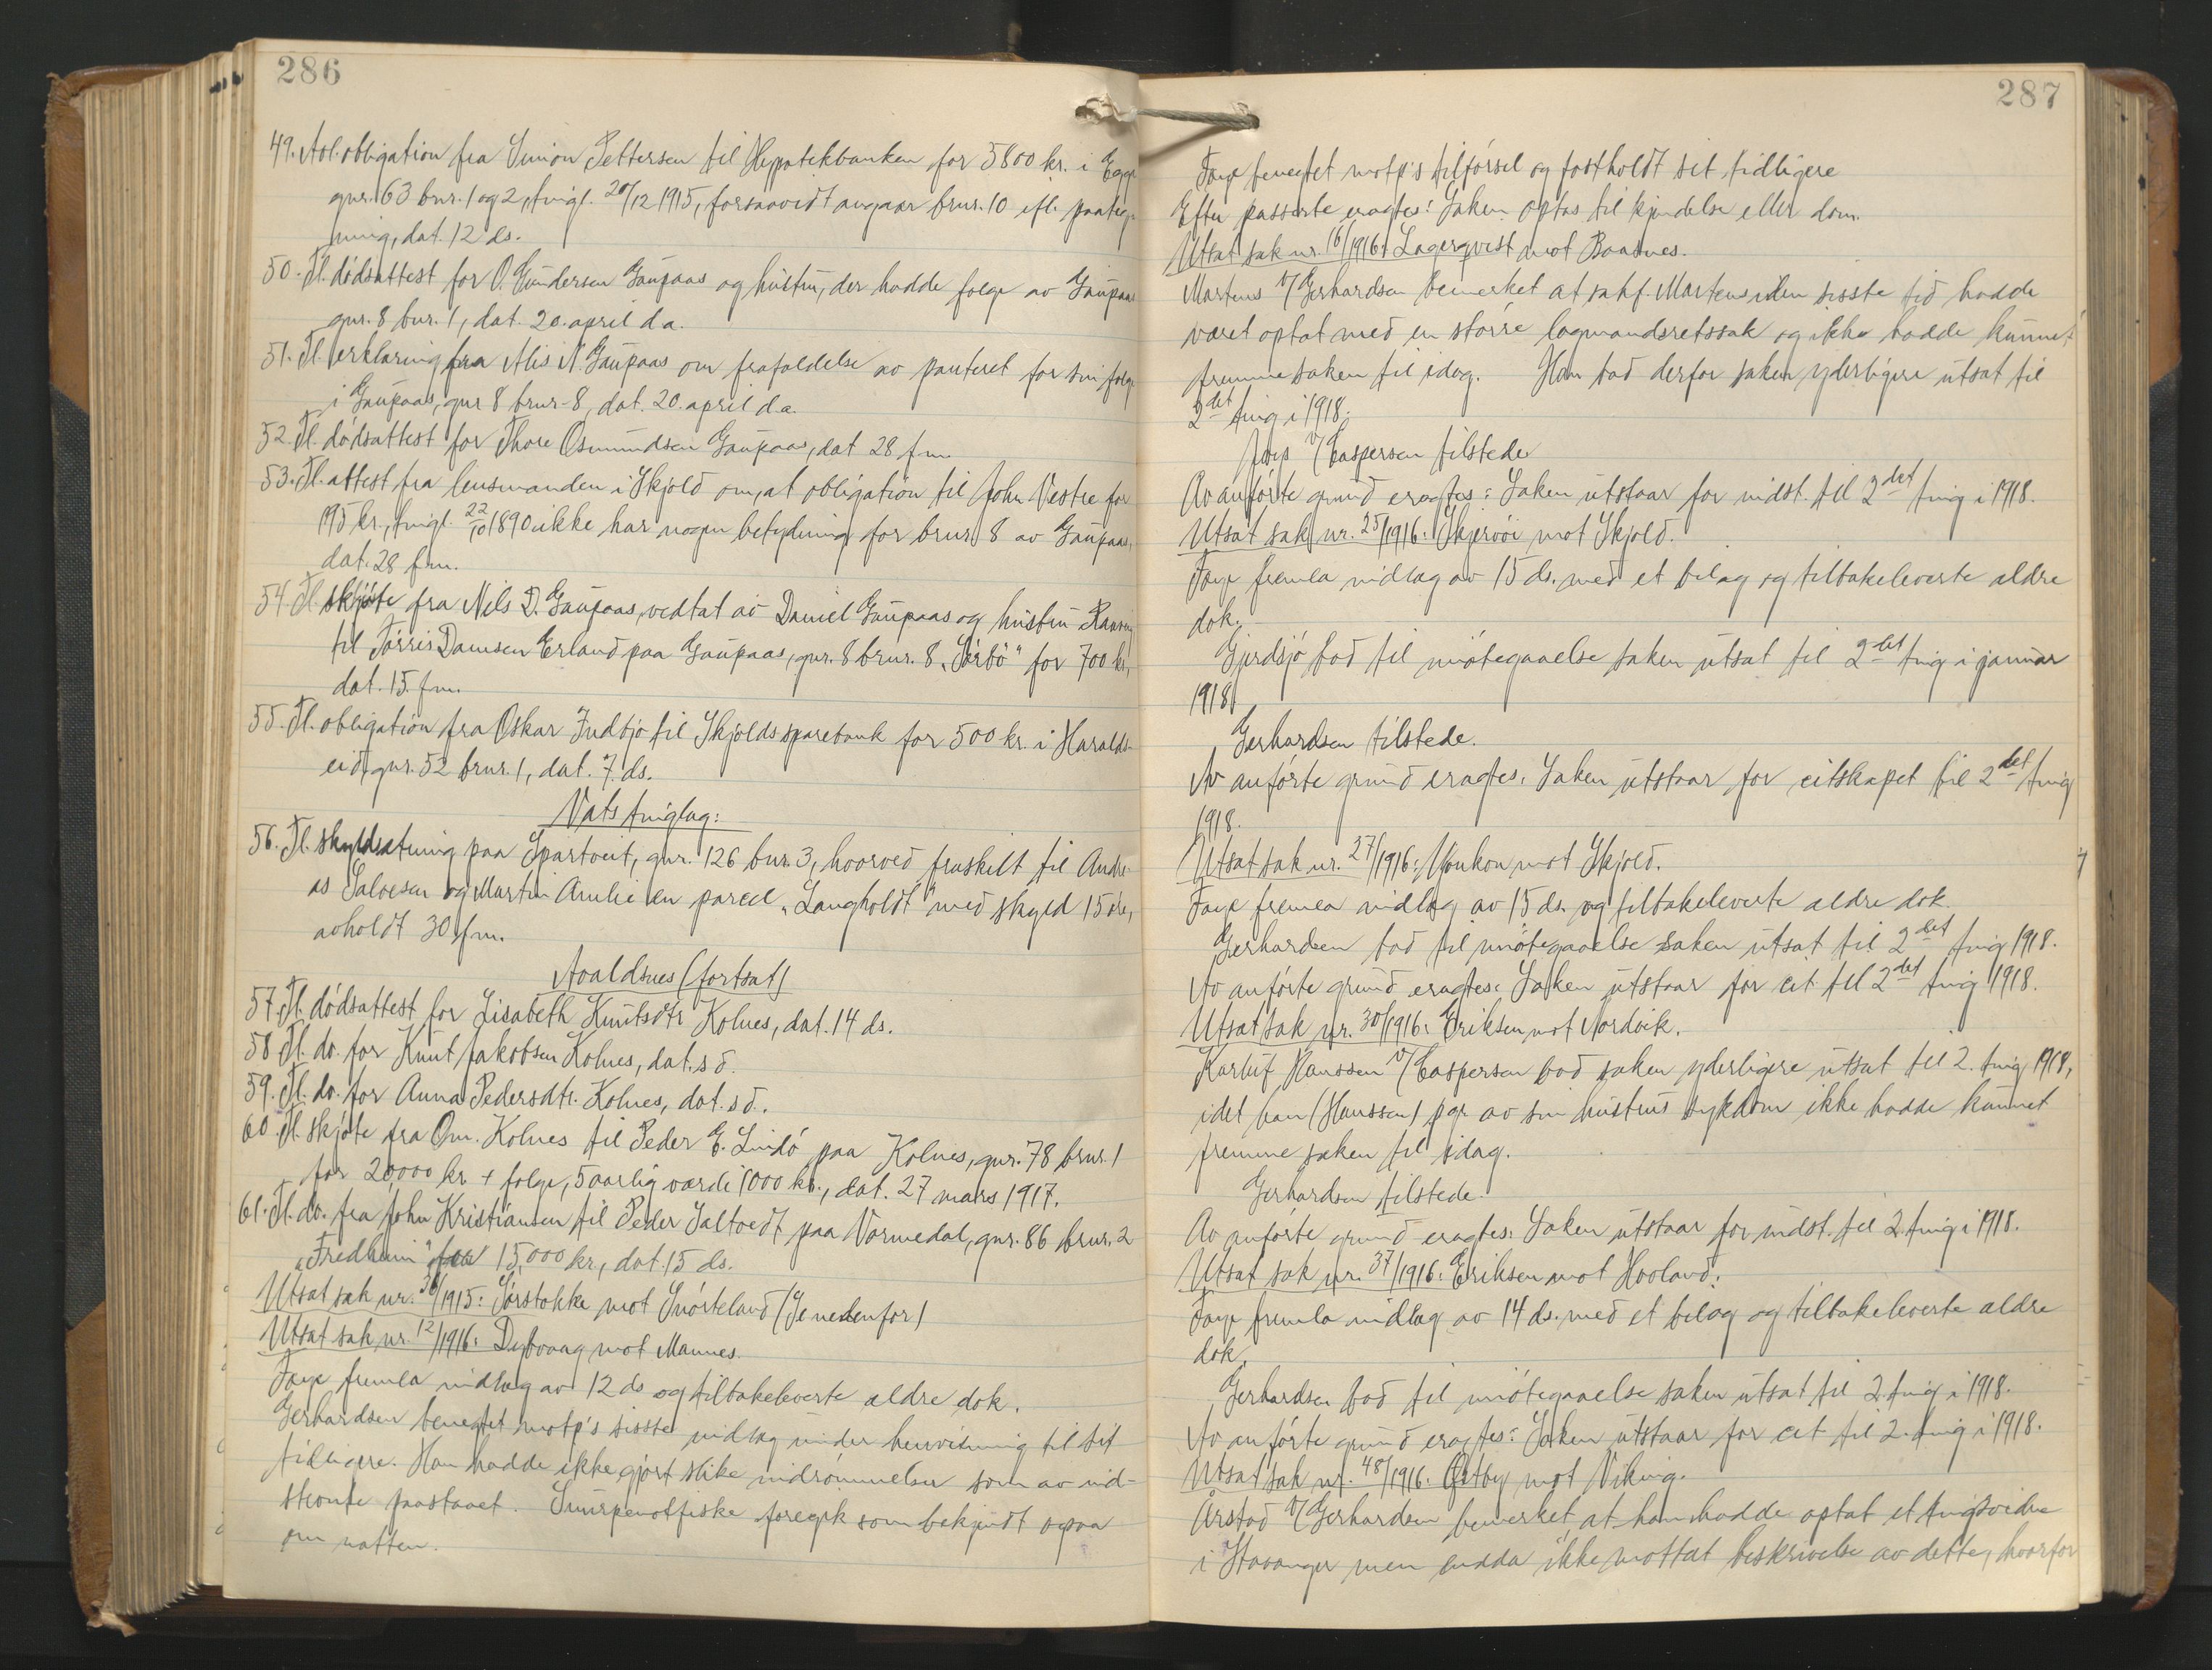 286
49. Avl. obligation fra Simon Pettersen til Hypotekbanken for 5800 kr. i Egge
gnr. 63 bnr. 1 og 2, tingl. 20/12 1915, forsaavidt angaar brnr. 10 efl. paateg-
ning, dat. 12 ds.
50. Tl. dödsattest for O. Gundersen Gaupaas og hustru, der hadde folge av Gaupaas
gnr. 8 bnr. 1, dat. 20. april d.a.
51. Tl. erklæring fra Nils N. Gaupaas om frafaldelse av panteret for sin folge
i Gaupaas, gnr 8 brnr. 8, dat. 20. april d.a.
52. Tl. dödsattest for Thore Osmundsen Gaupaas, dat 28 f.m.
53. Tl. attest fra lensmanden i Skjold om, at obligation til John Vestre for
195 kr., tingl. 22/10 1890 ikke har nogen betydning for brnr. 8 av Gaupaas,
dat. 28 f.m.
54 Tl. skjöte fra Nils D. Gaupaas, vedtat av Daniel Gaupaas og hustru
til Törris Danisen Erland paa Gaupaas, gnr. 8 brnr. 8 "Sörbö" for 700 kr.,
dat. 15. f.m.
55. Tl. obligation fra Oskar Indbjo til Skjolds sparebank for 500 kr. i Haralds-
eid, gnr. 52 brnr. 1, dat. 7. ds.
Vats tinglag:
56. Tl. skyldsætning paa Spartveit, gnr. 126 bnr. 3, hvorved fraskilt til Andre-
as Salvesen og Martin Amlie en parcel "Langholdt" med skyld 15 öre,
avholdt 30 f.m.
Avaldsnes (fortsat)
57. Tl. dödsattest for Lisabeth Knutsdtr Kolnes, dat. 14 ds.
58 Tl. do. for Knut Jakobsen Kolnes, dat. s d.
59. Tl. do. for Anna Pedersdtr. Kolnes, dat. s d.
60. Tl. skjöte fra Om. Kolnes til Peder E. Lindö paa Kolnes, gnr. 78 brnr. 1
for 20,000 kr. + folge, 5 aarlig værdi 1000 kr., dat. 27 mars 1917.
61. Tl. do. fra John Kristiansen til Peder Saltvedt paa Vormedal, gnr. 86 brnr. 2
"Fredheim" for 15,000 kr., dat. 15 ds.
Utsat sak nr. 36/1915: Sörstokke mot Snörteland (Se nedenfor)
Utsat sak nr. 12/1916: Dybvaag mot Mannes.
Faye fremla indlæg av 12 ds og tilbakeleverte ældre dok.
Gerhardsen benegtet motp's sisste indlæg under henvisning til sit
tidligere. Han hadde ikke gjort slike indrömmelser som av ind-
stevnte paastaaet. Snurpenotfiske foregik som bekjendt ogsaa
om natten.
287
Faye benegtet motp's tilförsel og fastholdt sit tidligere
Efter passerte eragtes: Saken optas til kjendelse eller dom.
Utsat sak nr. 16/1916: Lagerqvist mot Baadnes.
Martens v/Gerhardsen bemerket at sakf. Martens i den sisste tid hadde
været optat med en större lagmandsretssak og ikke hadde kunnet
fremme saken til idag. Han bad derfor saken yderligere utsat til
2det ting i 1918.
Faye v/Caspersen tilstede
Av anförte grund eragtes: Saken utstaar for indst. til 2det ting i 1918.
Utsat sak nr. 25/1916: Skjervöi mot Skjold.
Faye fremla indlæg av 15 ds. med et bilag og tilbakeleverte ældre
dok.
Gjerdsjö bad til imötegaaelse saken utsat til 2det ting i januar
1918.
Gerhardsen tilstede.
Av anförte grund eragtes: Saken utstaar for citskapet til 2det ting
1918.
Utsat sak nr. 27/1916: mot Skjold.
Faye fremla indlæg av 15 ds. og tilbakeleverte ældre dok.
Gerhardsen bad til imötegaaelse saken utsat til 2det ting 1918.
Av anförte grund eragtes: Saken utstaar for cit. til 2det ting 1918.
Utsat sak nr. 30/1916: Eriksen mot Nordvik.
Karluf Hanssen v/Caspersen bad saken yderligere utsat til 2. ting 1918,
idet han (Hanssen) pga av sin hustrus sykdom ikke hadde kunnet
fremme saken til idag.
Gerhardsen tilstede.
Av anförte grund eragtes: Saken utstaar for indst. til 2. ting i 1918.
Utsat sak nr. 37/1916: Eriksen mot Haaland:
Faye fremla indlæg av 14 ds. med et bilag og tilbakeleverte ældre
dok.
Gerhardsen bad til imötegaaelse saken utsat til 2. ting i 1918.
Av anförte grund eragtes: Saken utstaar for cit til 2. ting i 1918.
Utsat sak nr. 48/1916: Östby mot Viking.
Årstad v/Gerhardsen bemerket at han hadde optat et tingsvidne
i Stavanger men endda ikke mottat beskrivelse av dette, hvorfor